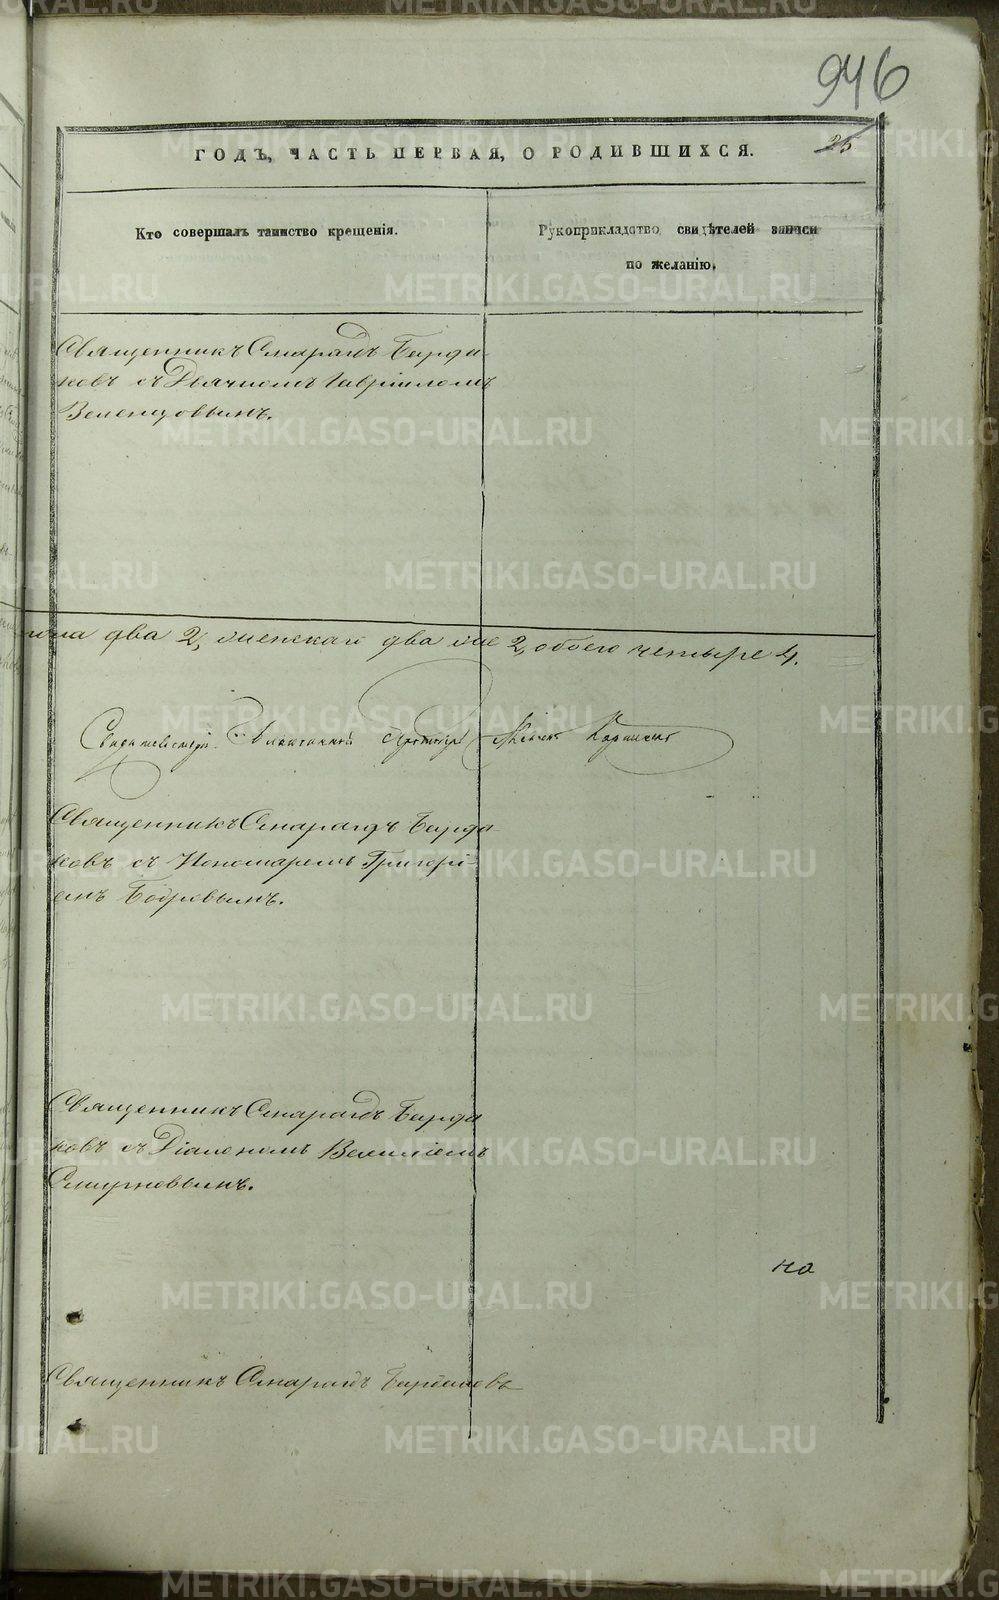 946
25
ГОДЪ, ЧАСТЬ ПЕРВАЯ, О РОДИВШИХСЯ.
Кто совершалъ таинство крещенія.
Рукоприкладство свидѣтелей записи
по желанію.
Священникъ Смарагдъ Барда-
ковъ съ Дьячкомъ Гавріиломъ
Зеленцовымъ.
пола два 2, женскаго два же 2, обоего четыре 4.
Священникъ Смарагдъ Барда-
ковъ съ Пономаремъ Григорі-
емъ Бобровымъ.
Священникъ Смарагдъ Барда
ковъ съ Діакономъ Василіемъ
Смирновымъ.
на
Священникъ Смарагдъ Бардаковъ
METRIKI.GASO-URAL.RU